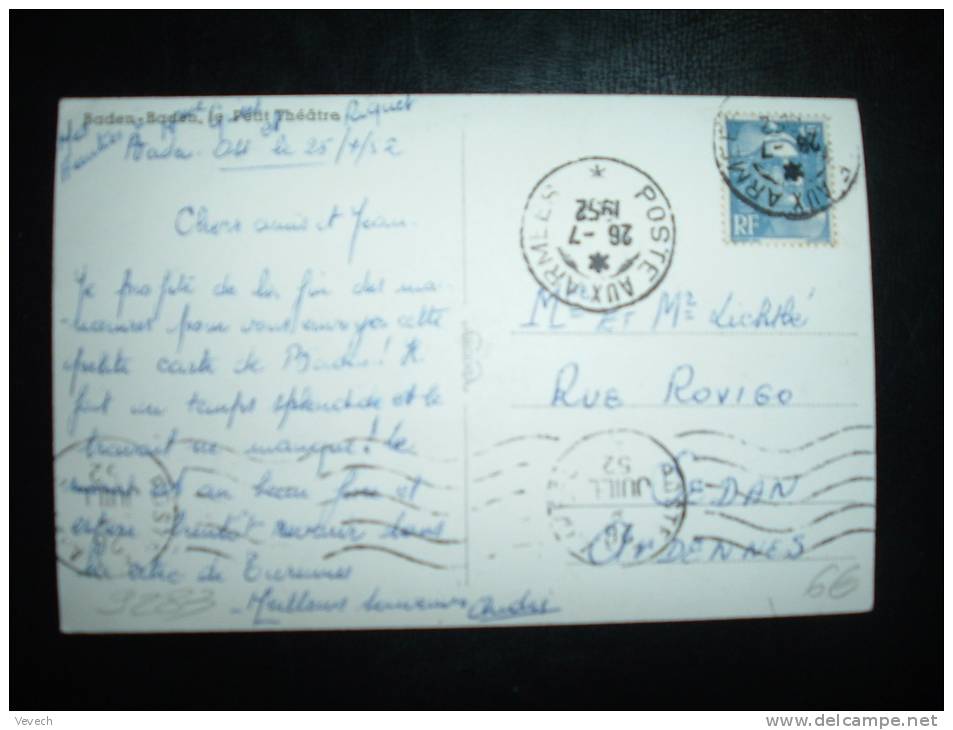 Baden-Baden, le Petit Théâtre
Baden-Oos le 25/7/52
Chers amis et Jean.
Je profite de la fin des ma-
-nœuvres pour vous envoyer cette
petite carte de Baden! Il
fait un temps splendide et le
travail ne manque! Le
moral est au beau fixe et
enfin bientôt revenir dans
la ville de Turennes
Meilleurs souvenirs André
POSTE AUX ARMEES
26 -7
1952
POSTE AUX ARMEES
26 -7
RF
Mme ET Mr Lichtlé
RUE ROVIGO
SEDAN
ArDENNES
JUILL
52
JUILL
52
9283
66
Vevech
www.delcampe.net